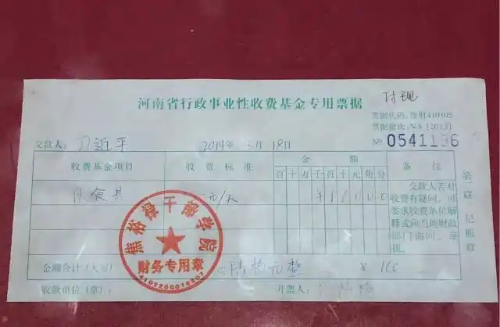 河南省行政事业性收费基金专用票据
付现
票据代码:豫财410105
票据批次:NA[2013]
交款人: 习近平 2014年 3月 18日 № 0541136
收费基金项目 收费标准 金额 备注
百十万千百十元角分
伙食费 元/天
交款人若对收费有疑问,可要求收费单位解释或向当地财政部门询问、举报。
第三联 记账联
焦裕禄干部学院
财务专用章
金额合计(大写) 壹佰陆拾元整 ¥ 160
收款单位(章): 开票人: